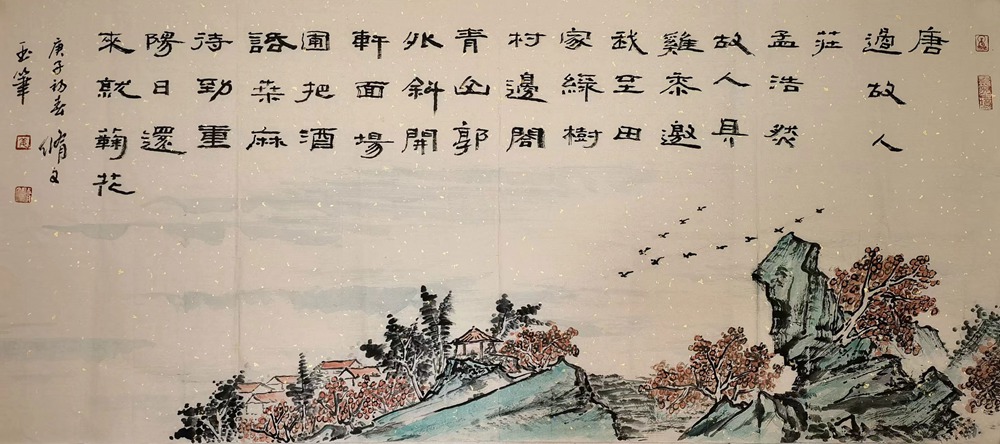 唐
過故人
莊
孟浩然
故人具
雞黍邀
我至田
家綠樹
村邊閤
青山郭
外斜開
軒面場
圃把酒
話桑麻
待到重
陽日還
來就蘜花
庚子初春脩文
筆